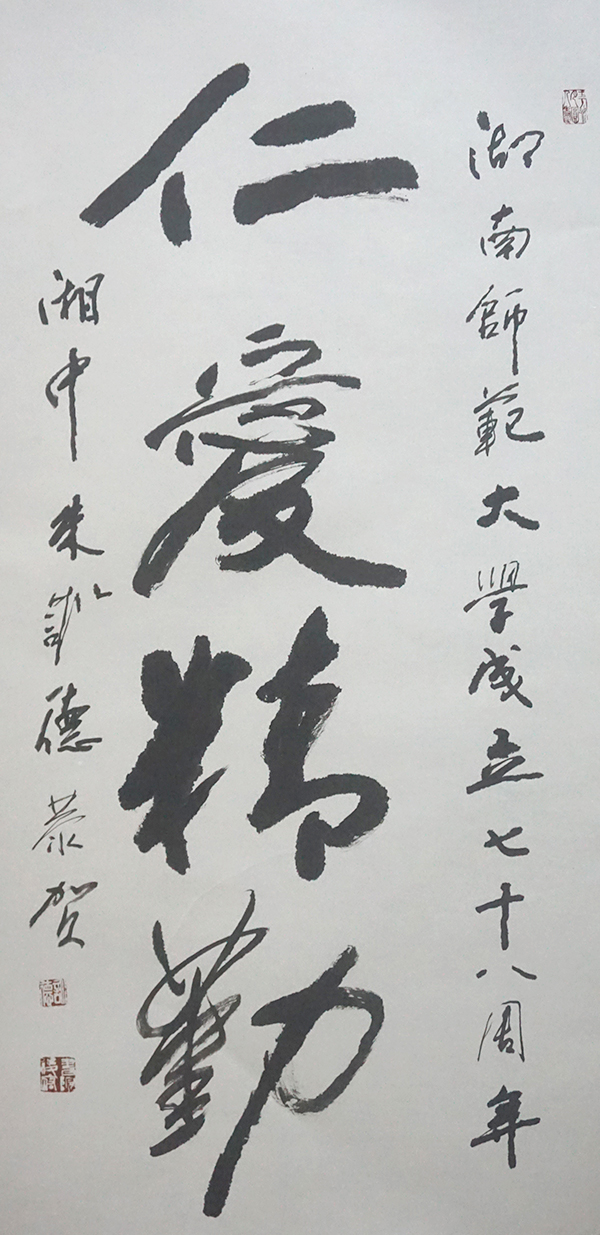 湖南師範大學成立七十八周年
仁愛精勤
湘中朱訓德恭贺